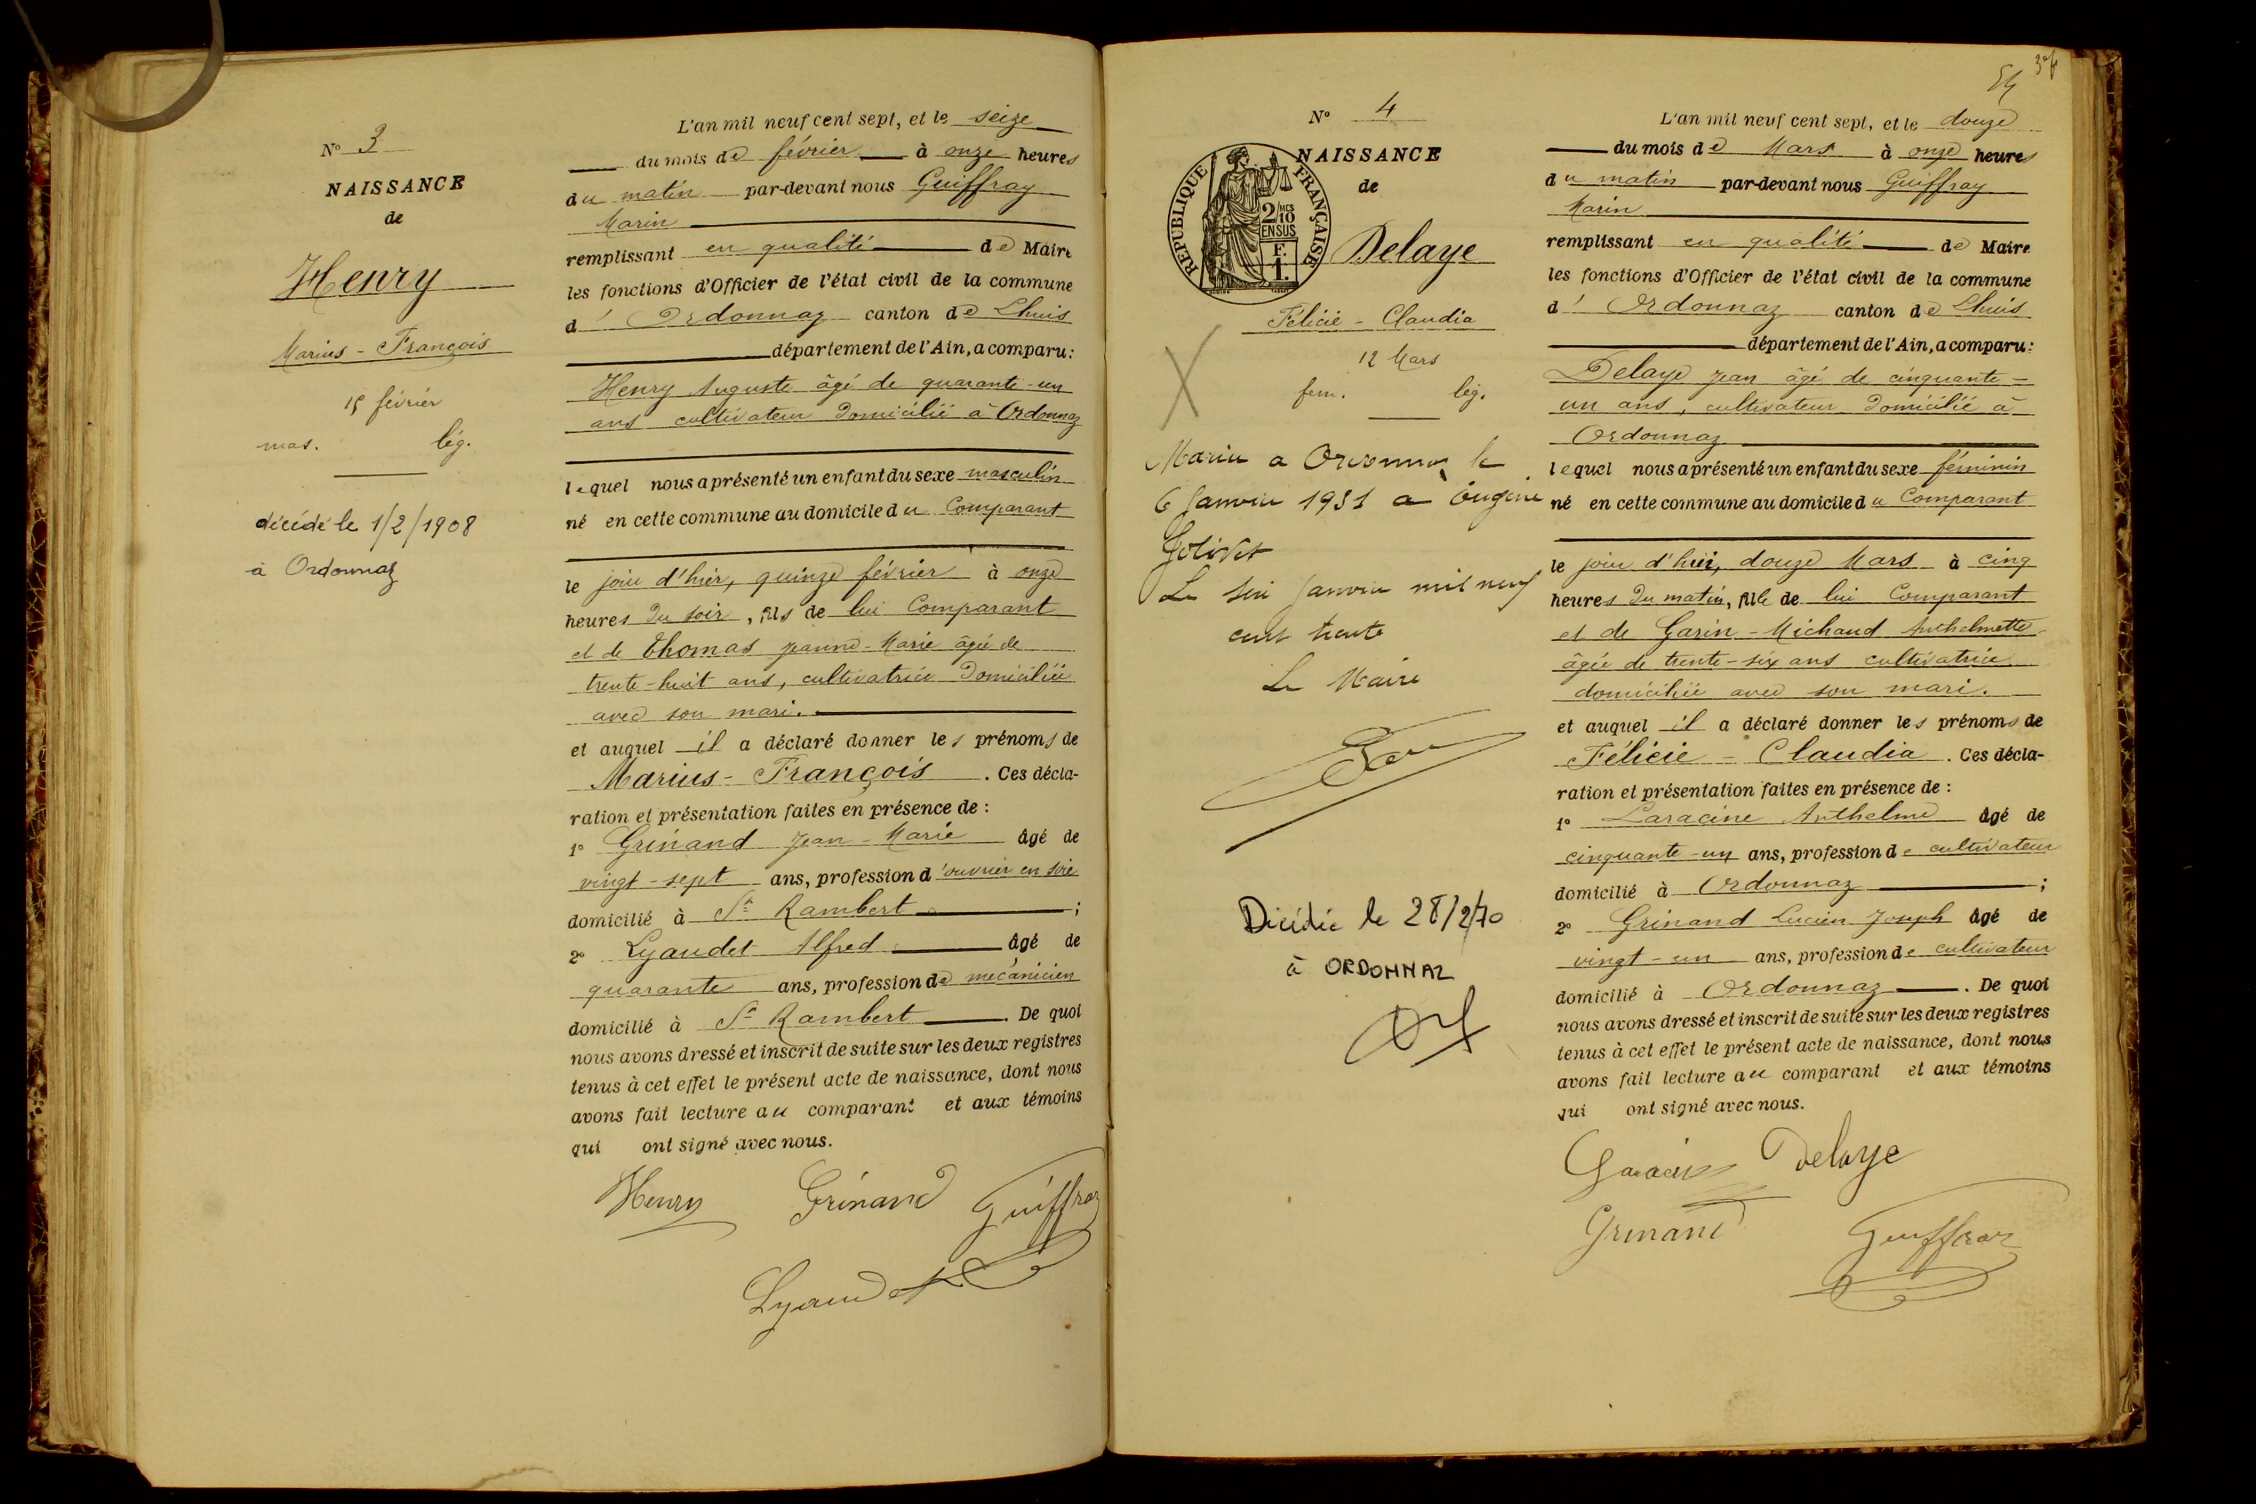 N° 3
NAISSANCE
de
Henry
Marius - François
15 février
mas. lég.
décédé le 1/2/1908
à Ordonnaz
L'an mil neuf cent sept, et le seize
du mois de février à onze heures
du matin par-devant nous Guiffray
Marin
remplissant en qualité de Maire
les fonctions d'Officier de l'état civil de la commune
d' Ordonnaz canton de Lhuis
département de l'Ain, a comparu:
Henry Auguste âgé de quarante-un
ans cultivateur domicilié à Ordonnaz
lequel nous a présenté un enfant du sexe masculin
né en cette commune au domicile du Comparant
le jour d'hier, quinze février à onze
heures du soir, fils de lui Comparant
et de Thomas Jeanne-Marie âgée de
trente-huit ans, cultivatrice domiciliée
avec son mari.
et auquel il a déclaré donner les prénoms de
Marius - François. Ces décla-
ration et présentation faites en présence de :
1° Grinand Jean-Marie âgé de
vingt-sept ans, profession d'ouvrier en soie
domicilié à St Rambert ;
2° Lyaudet Alfred âgé de
quarante ans, profession de mécanicien
domicilié à St Rambert. De quoi
nous avons dressé et inscrit de suite sur les deux registres
tenus à cet effet le présent acte de naissance, dont nous
avons fait lecture au comparant et aux témoins
qui ont signé avec nous.
Henry Grinand Guiffray
Lyaudet
54
N° 4
NAISSANCE
de
RÉPUBLIQUE FRANÇAISE
2/10 MES
EN SUS
F.
1.
Delaye
Félicie - Claudia
12 Mars
fém. lég.
X
Mariée a Ordonnaz le
6 Janvier 1931 a Eugène
Golivet
Le six Janvier mil neuf
cent trente
Le Maire
Décédée le 28/2/70
à ORDONNAZ
L'an mil neuf cent sept, et le douze
du mois de Mars à onze heures
du matin par-devant nous Guiffray
Marin
remplissant en qualité de Maire
les fonctions d'Officier de l'état civil de la commune
d' Ordonnaz canton de Lhuis
département de l'Ain, a comparu:
Delaye Jean âgé de cinquante-
un ans, cultivateur domicilié à
Ordonnaz
lequel nous a présenté un enfant du sexe féminin
né en cette commune au domicile du Comparant
le jour d'hier, douze Mars à cinq
heures du matin, fille de lui Comparant
et de Garin-Michaud Anthelmette
âgée de trente-six ans cultivatrice
domiciliée avec son mari.
et auquel il a déclaré donner les prénoms de
Félicie - Claudia. Ces décla-
ration et présentation faites en présence de :
1° Laracine Anthelme âgé de
cinquante-un ans, profession de cultivateur
domicilié à Ordonnaz ;
2° Grinand Lucien Joseph âgé de
vingt-un ans, profession de cultivateur
domicilié à Ordonnaz. De quoi
nous avons dressé et inscrit de suite sur les deux registres
tenus à cet effet le présent acte de naissance, dont nous
avons fait lecture au comparant et aux témoins
qui ont signé avec nous.
Delaye
Grinand Guiffray